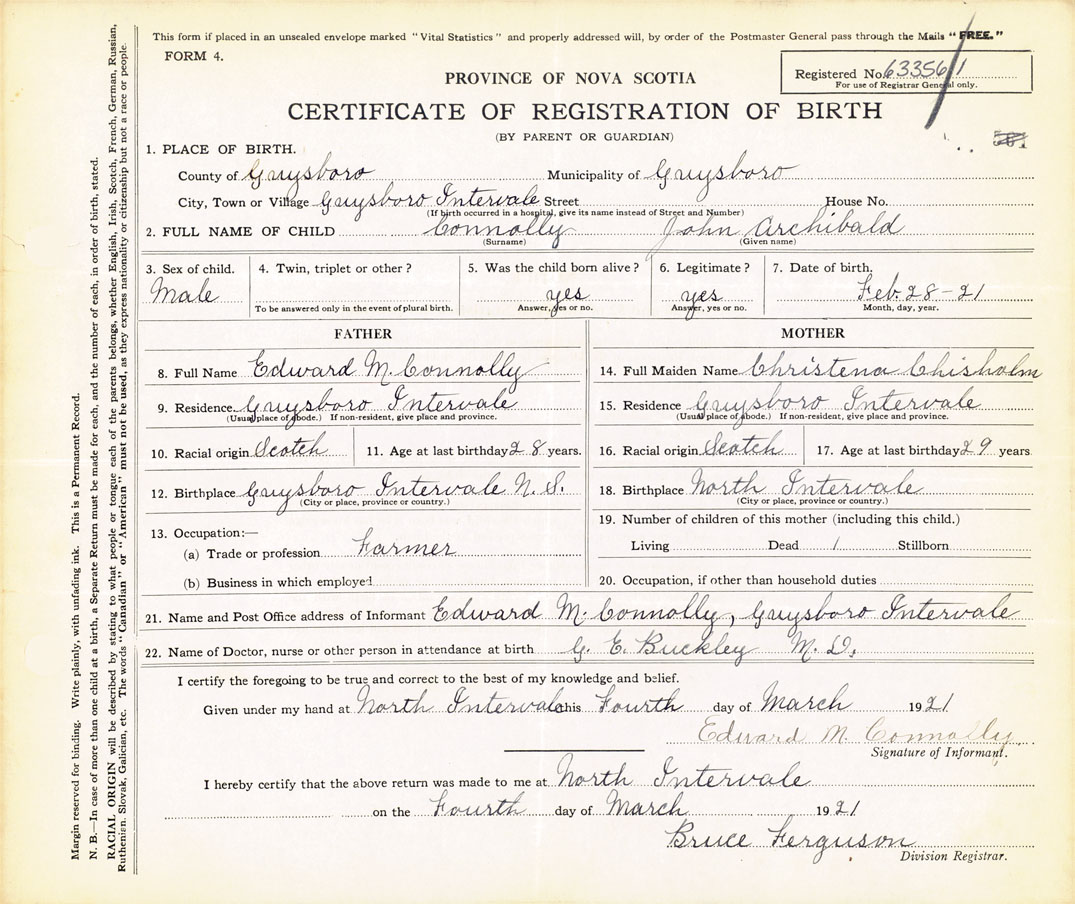 This form if placed in an unsealed envelope marked "Vital Statistics" and properly addressed will, by order of the Postmaster General pass through the Mails "FREE."
FORM 4.
Registered No. 63356/1
For use of Registrar General only.
PROVINCE OF NOVA SCOTIA
CERTIFICATE OF REGISTRATION OF BIRTH
(BY PARENT OR GUARDIAN)
1. PLACE OF BIRTH.
County of Guysboro Municipality of Guysboro
City, Town or Village Guysboro Intervale Street House No.
(If birth occurred in a hospital, give its name instead of Street and Number)
2. FULL NAME OF CHILD Connolly John Archibald
(Surname) (Given name)
3. Sex of child. 4. Twin, triplet or other? 5. Was the child born alive? 6. Legitimate? 7. Date of birth.
Male yes yes Feb. 28-21
To be answered only in the event of plural birth. Answer, yes or no. Answer, yes or no. Month, day, year.
FATHER MOTHER
8. Full Name Edward M. Connolly 14. Full Maiden Name Christena Chisholm
9. Residence Guysboro Intervale 15. Residence Guysboro Intervale
(Usual place of abode.) If non-resident, give place and province. (Usual place of abode.) If non-resident, give place and province.
10. Racial origin Scotch 11. Age at last birthday 28 years. 16. Racial origin Scotch 17. Age at last birthday 29 years
12. Birthplace Guysboro Intervale N.S. 18. Birthplace North Intervale
(City or place, province or country.) (City or place, province or country.)
13. Occupation:— 19. Number of children of this mother (including this child.)
(a) Trade or profession Farmer Living Dead 1 Stillborn
(b) Business in which employed 20. Occupation, if other than household duties
21. Name and Post Office address of Informant Edward M. Connolly, Guysboro Intervale
22. Name of Doctor, nurse or other person in attendance at birth G. E. Buckley M. D.
I certify the foregoing to be true and correct to the best of my knowledge and belief.
Given under my hand at North Intervale this Fourth day of March 1921
Edward M. Connolly
Signature of Informant.
I hereby certify that the above return was made to me at North Intervale
on the Fourth day of March 1921
Bruce Ferguson
Division Registrar.
Margin reserved for binding. Write plainly, with unfading ink. This is a Permanent Record.
N. B.—In case of more than one child at a birth, a Separate Return must be made for each, and the number of each, in order of birth, stated.
RACIAL ORIGIN will be described by stating to what people or tongue each of the parents belongs, whether English, Irish, Scotch, French, German, Russian,
Ruthenian, Slovak, Galician, etc. The words "Canadian" or "American" must not be used, as they express nationality or citizenship but not a race or people.